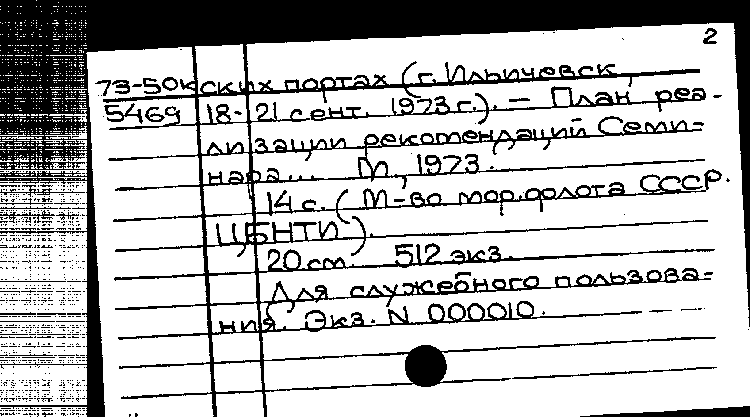 2
73-50к ских портах (г. Ильичевск,
5469 18-21 сент. 1973 г.). — План реа-
лизации рекомендаций Семи-
нара... М., 1973.
14 с. (М-во мор. флота СССР.
ЦБНТИ).
20 см. 512 экз.
Для служебного пользова-
ния. Экз. N 000010.